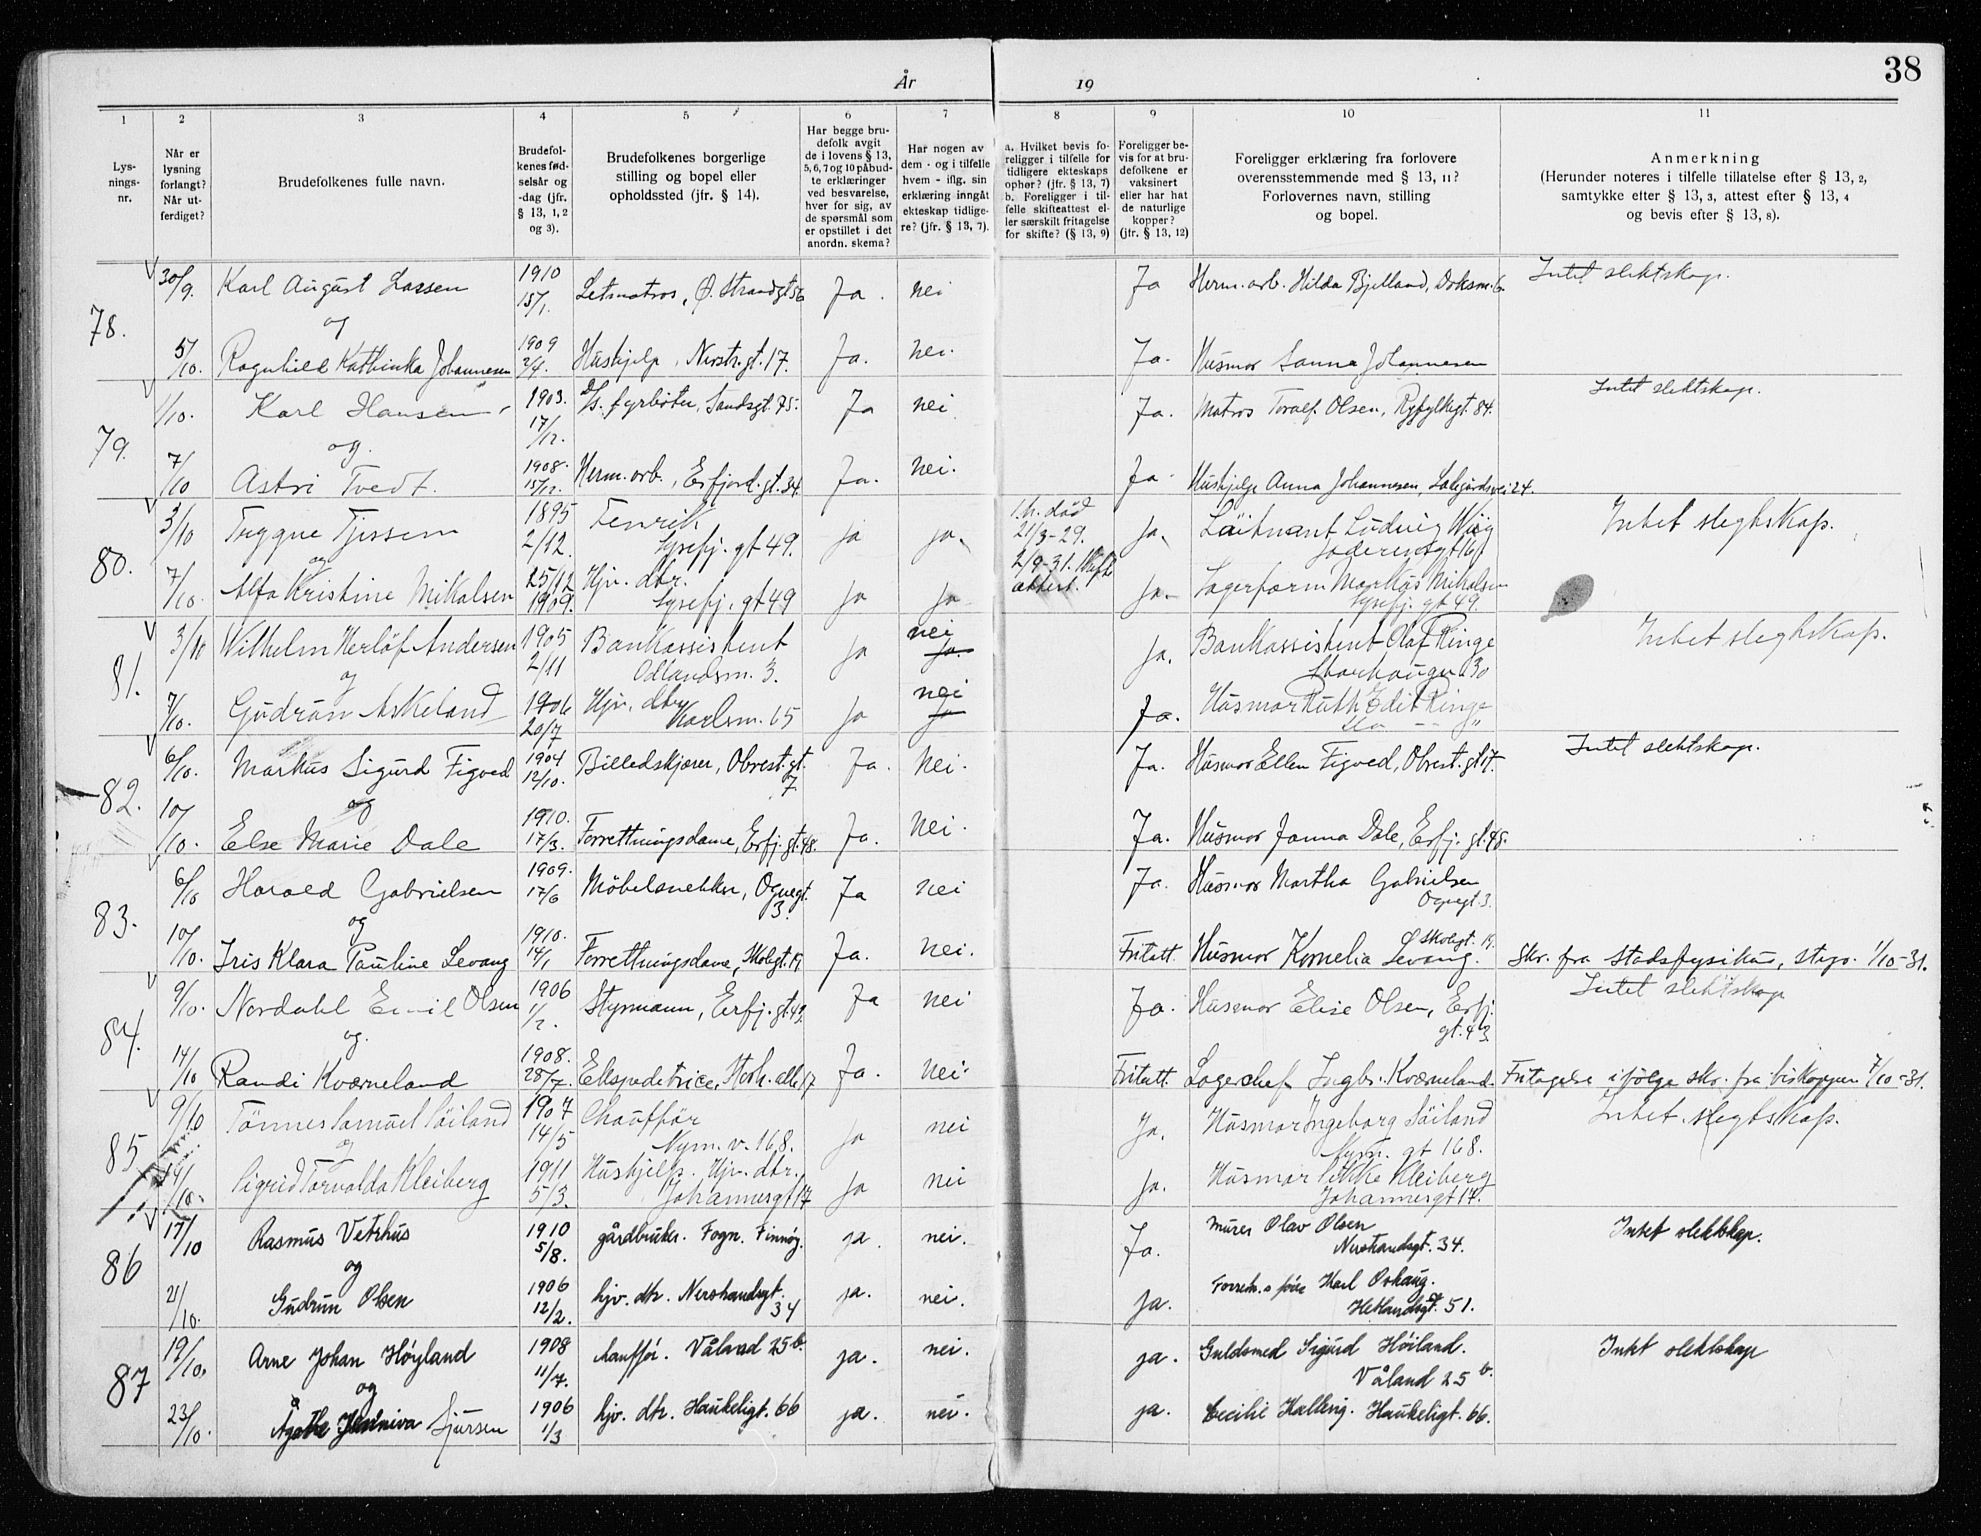 38
År 19
1 2 3 4 5 6 7 8 9 10 11
Lys-
nings-
nr.
Når er
lysning
forlangt?
Når ut-
ferdiget?
Brudefolkenes fulle navn.
Brudefol-
kenes fød-
selsår og
-dag (jfr.
§ 13, 1, 2
og 3).
Brudefolkenes borgerlige
stilling og bopel eller
opholdssted (jfr. § 14).
Har begge bru-
defolk avgit
de i lovens § 13,
5, 6, 7 og 10 påbud-
te erklæringer
ved besvarelse,
hver for sig, av
de spørsmål som
er opstillet i det
anordn. skema?
Har nogen av
dem - og i tilfelle
hvem - iflg. sin
erklæring inngåt
ekteskap tidlige-
re? (jfr. § 13, 7).
a. Hvilket bevis fo-
religger i tilfelle for
tidligere ekteskaps
ophør? (jfr. § 13, 7)
b. Foreligger i til-
felle skifteattest el-
ler særskilt fritagelse
for skifte? (§ 13, 9)
Foreligger be-
vis for at bru-
defolkene er
vaksinert
eller har hat
de naturlige
kopper?
(jfr. § 13, 12)
Foreligger erklæring fra forlovere
overensstemmende med § 13, 11?
Forlovernes navn, stilling
og bopel.
Anmerkning
(Herunder noteres i tilfelle tillatelse efter § 13, 2,
samtykke efter § 13, 3, attest efter § 13, 4
og bevis efter § 13, 8).
78.
30/9. Karl August Lassen 1910 15/1. Letmatros, Ø. Strandgt 56 Ja. nei Ja Herm. arb. Hilda Bjelland, Doksm. 6 Intet slektskap.
og
5/10. Ragnhild Kathinka Johannesen 1909 2/4. Hushjelp, Nerstr. gt. 17. Ja. nei. Ja. Husmor Sanna Johannesen
79.
1/10. Karl Hansen 1903. 17/12. D/S. fyrbøter, Sandsgt. 75. Ja nei Ja. Matros Toralf Olsen, Ryfylkegt. 84. Intet slektskap.
og.
7/10 Astri Tvedt. 1908. 15/12. Herm. arb., Erfjord. gt. 34. Ja. nei. Ja. Hushjelp Anna Johannesen, 24.
80.
3/10 Trygve Tjessem 1895 2/12. Fenrik Lysefj. gt 49. ja ja. 1. h. død 21/3-29. ja. Läitnant Ludvig Wiig
og
7/10. Alfa Kristine Mikalsen 25/12 1909. Hjv. dtr. Lysefj. gt 49 ja ja 2/9-31. Skifte attest. ja. Lagerform Markus Mikalsen Lysefj. gt 49. Intet slegtskap.
81.
3/10 Wilhelm Herlöf Andersen 1905 2/11 Bankassistent Odlandsm. 3. ja nei ja. ja. Bankassistent Olaf Ringe Storhaugv. 30 Intet slegtskap.
og
7/10. Gudrun Askeland 1906 20/7 Hjv. dtr. Karlsm. 15 ja nei ja Ja. Husmor Ruth Edit Ringe
82.
6/10. Markus Sigurd Figved 1904 12/10. Billedskjærer, Obrest. gt. 7 Ja. Nei. Ja. Husmor Ellen Figved, Obrest. gt 7. Intet slektskap.
og
10/10. Else Marie Dale 1910. 17/3. Forrettningsdame, Erfj. gt. 48. Ja. Nei. Ja. Husmor Janna Dale, Erfj. gt. 48.
83.
6/10 Harald Gabrielsen 1909. 17/6 Möbelsnekker, Ognegt. 3. Ja nei Ja. Husmor Martha Gabrielsen Ognegt 3.
og
10/10. Iris Klara Pauline Levang 1910. 14/1 Forrettningsdame, Skolegt. 19 Ja. Nei. Fritatt. Husmor Kornelia Levang. Skolegt. 19. Skr. fra Stadsfysikus, Stvgr. 1/10-31.
84.
9/10. Nordahl Emil Olsen 1906 1/2. Styrmann, Erfj. gt. 43. Ja nei Ja. Husmor Elise Olsen, Erfj. gt. 43. Intet slektskap
og.
14/10 Randi Kværneland 1908. 28/7. Ekspeditrice, Storh. alle 17 Ja. Nei. Fritatt. Lagerchef Ingbr. Kværneland. Fritagelse ifølge skr. fra biskoppen 7/10-31.
85
9/10 Tönnes Samuel Söiland 1907 14/5 Chaufför Nym. v. 168. ja nei Ja. Husmor Ingeborg Söiland Nym. gt 168. Intet slegtskap.
og
14/10. Sigrid Torvalda Kleiberg 1911 5/3. Hushjelp. Hjv. dtr. Johannesgt 17 ja nei ja. Husmor Rikke Kleiberg Johannesgt 17.
86
17/10 Rasmus Vetrhus 1910 5/8. gårdbruker. Fogn. Finnøy. ja. nei. Ja. Murer Olav Olsen Nerstrandsgt. 34. Intet slektskap.
og
21/10. Gudrun Olsen 1906 12/2. hjv. dtr. Nerstrandsgt. 34 ja. nei. ja. Karl Oshaug. Hetlandsgt. 51.
87
19/10. Arne Johan Høyland 1908 11/7. kauffør. Våland 25 b. ja. nei. ja. Guldsmed Sigurd Høiland. Våland 25 b. Intet slektskap
og
23/10. Ågathe Sjursen 1906 1/3 hjv. dtr. Haukeligt. 66 ja. nei. ja. Cecilie Kælling. Haukeligt. 66.